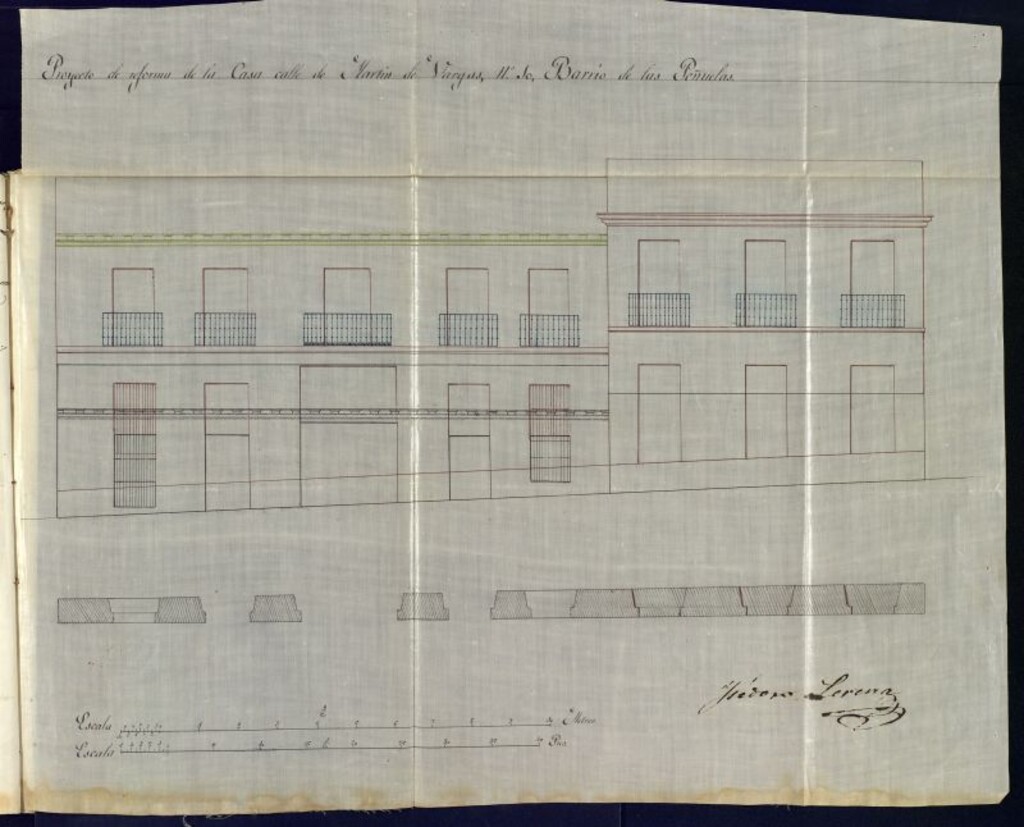 Proyecto de reforma de la Casa calle de Martin de Vargas, Nº 10, Barrio de las Peñuelas.
Isidoro Lerena
Escala Metros
Escala Pies